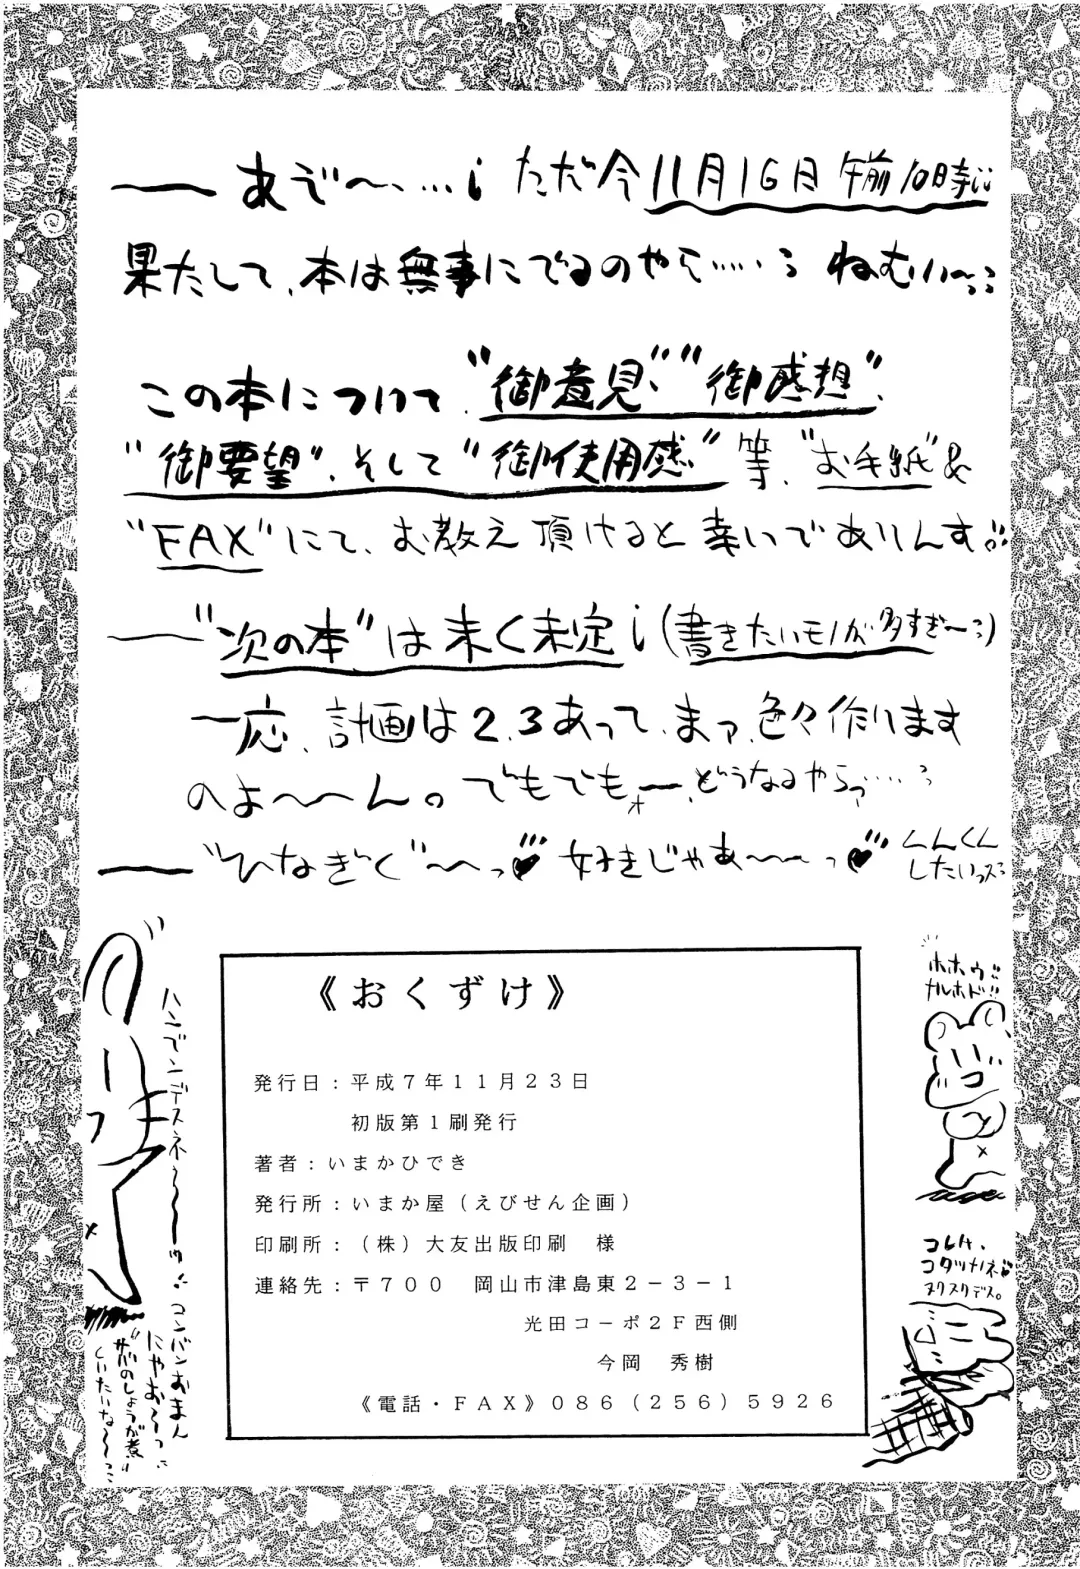 ーーあぞ〜、…¡ ただ今11月16日午前10時¡¡
果たして、本は無事にでるのやら……： ねむい〜：：
この本について、"御意見"、"御感想"、
"御要望"、そして"御使用感"等、"お手紙"&
"FAX"にて、お教え頂けると幸いでありんす。
――"次の本"は未く未定¡(書きたいモノが多すぎ〜：)
一応、計画は2、3あって、まっ、色々作ります
のよ〜〜ん。でもでもォー、どうなるやらっ……：
――"ひなぎく"〜〜っ 好きじゃあ〜〜っ
くんくん
したいっス：
ハンデンデスネ〜〜
コンバンおまん
にゃお〜っ
"サバのしょうが煮"
《おくずけ》
発行日：平成７年１１月２３日
初版第１刷発行
著者：いまかひでき
発行所：いまか屋（えびせん企画）
印刷所：（株）大友出版印刷　様
連絡先：〒７００　岡山市津島東２－３－１
光田コーポ２Ｆ西側
今岡　秀樹
《電話・ＦＡＸ》０８６（２５６）５９２６
ホホウ!!
ナルホド!!
コレハ、
コタツナノネ
ヌクヌクデス。